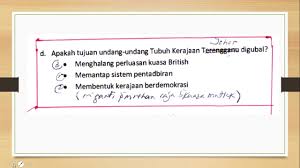 Johor
d. Apakah tujuan undang-undang Tubuh Kerajaan Terengganu digubal?
Menghalang perluasan kuasa British
Memantap sistem pentadbiran
Membentuk kerajaan berdemokrasi
kuasa mutlak